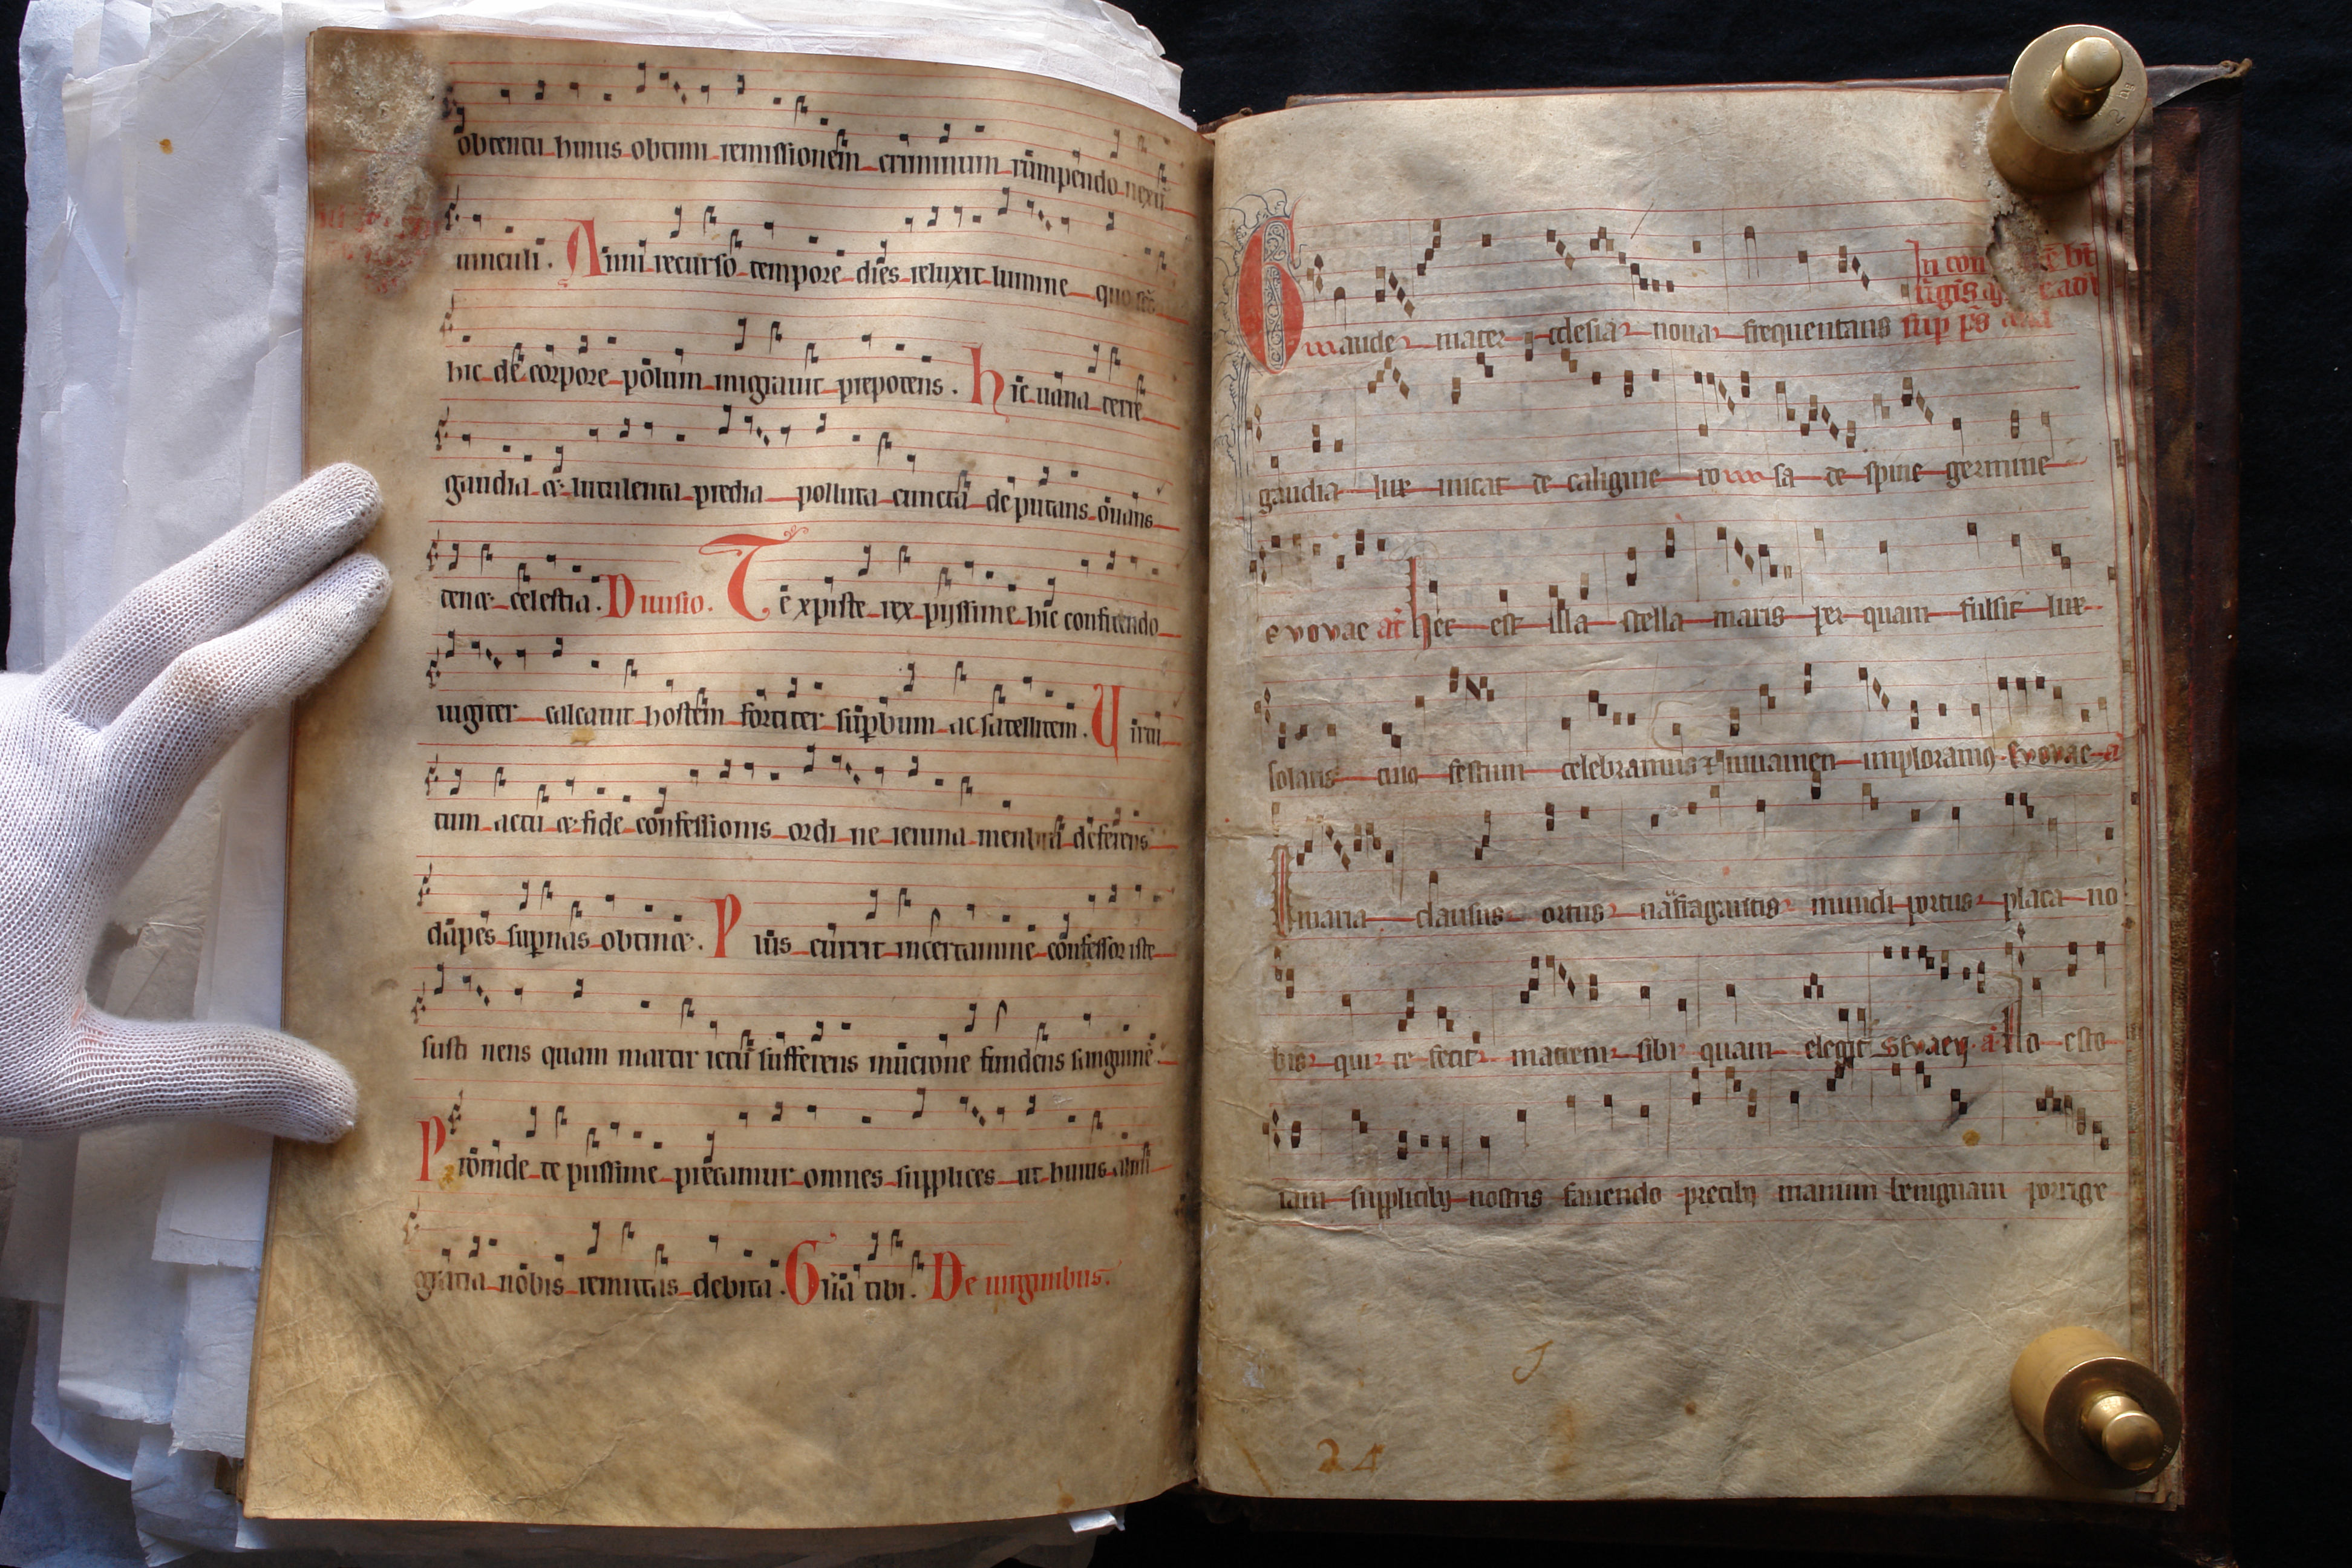 obtentu huius obtinu remissionem criminum rumpendo nexu
uinculi. Anni recurso tempore dies reluxit lumine quo
hic de corpore polum migrauit prepotens. hic uana terre
gaudia et lutulenta predia polluta cuncta deputans ouans
tenet celestia. Diuisio. Te xpiste rex pijssime hic confitendo
iugiter calcauit hostem fortiter supbum ac satellitem. Uirtu
tum actu et fide confessionis ordine ieiuna membra deferens
dapes supnas obtinet. Pius currit in certamine confessor iste
sustinens quam martir ictu sufferens mucrone fundens sanguine
Proinde te piissime precamur omnes supplices ut huius almi
gratia nobis remittas debita. Glia tibi. De uirginibus.
Gaude mater ecclesia noua frequentans
sup ps
gaudia lux micat de caligine rosa de spine germine
evovae añ hec est illa stella maris per quam fulsit lux
solaris cuius festum celebramus et iuuamen imploramus. Evovae
maria clausus ortus naufragantis mundi portus placa no
bis qui te fecit matrem sibi quam elegit evovae. llo esto
iam supplicibus nostris fauendo precibus manum benignam porrige
24